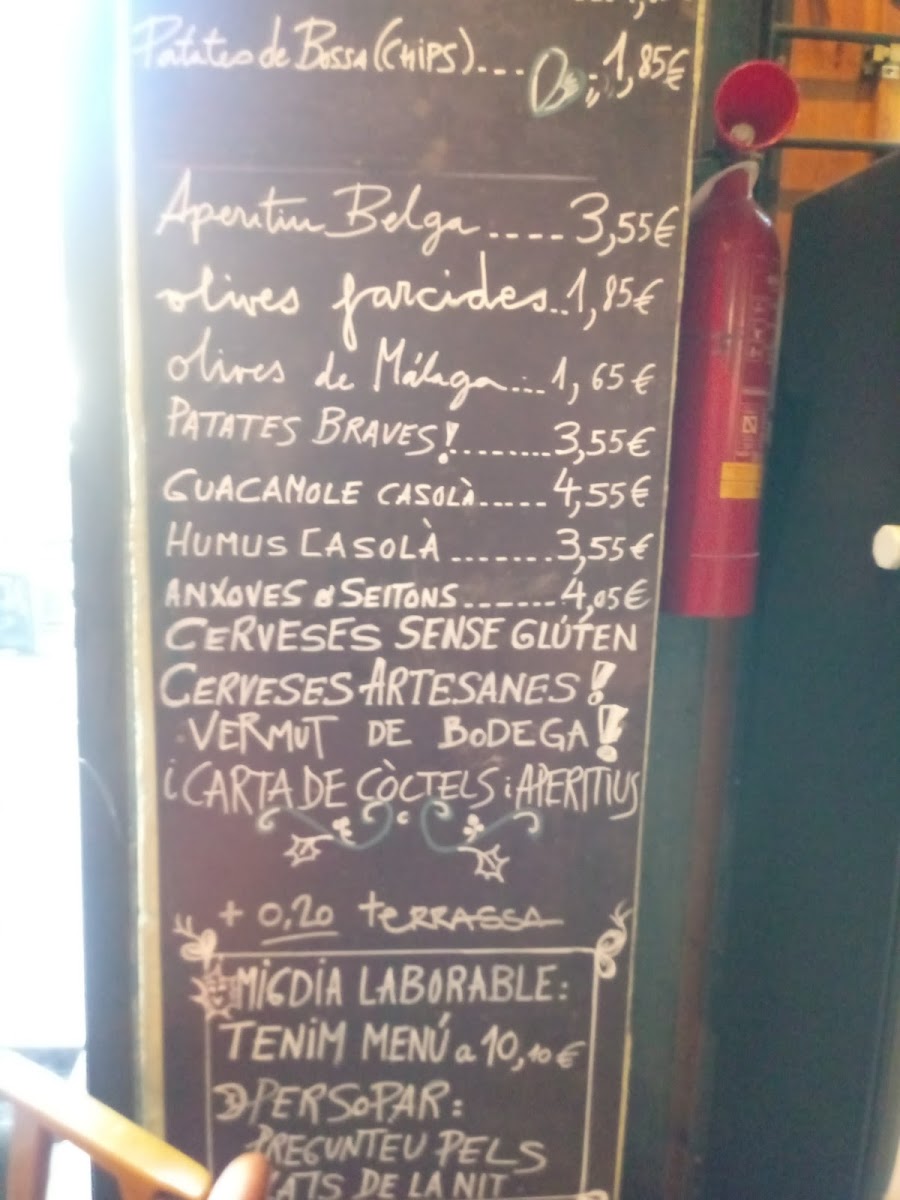 Patates de Bossa (CHIPS).... 1,85€
Aperitiu Belga .... 3,55€
olives farcides..1,85€
olives de Málaga....1,65€
PATATES BRAVES!.........3,55€
GUACAMOLE CASOLÀ.....4,55€
HUMUS CASOLÀ.......3,55€
ANXOVES o SEITONS.......4,05€
CERVESES SENSE GLÚTEN
CERVESES ARTESANES!
VERMUT DE BODEGA!
i CARTA DE CÒCTELS i APERITIUS
+ 0,20 TERRASSA
MIGDIA LABORABLE:
TENIM MENÚ a 10,10€
PER SOPAR:
PREGUNTEU PELS
DE LA NIT